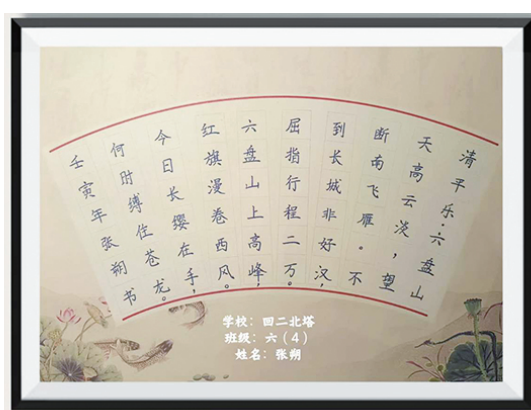 清平乐·六盘山
天高云淡，望
断南飞雁。不
到长城非好汉，
屈指行程二万。
六盘山上高峰，
红旗漫卷西风。
今日长缨在手，
何时缚住苍龙。
壬寅年张朔书
学校：回二北塔
班级：六（4）
姓名：张朔